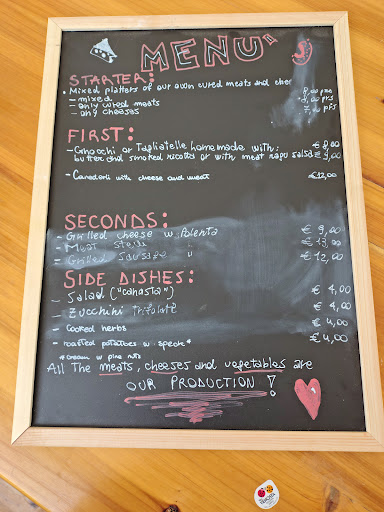 MENU
STARTER:
• Mixed platters of our own cured meats and
- mixed 8,00 prs
- only cured meats 8,00 prs
- only cheeses 7,00 prs
FIRST:
- Gnocchi or Tagliatelle homemade with: € 8,00
butter and smoked ricotta or with meat ragu salsa € 9,00
- Canederli with cheese and meat €12,00
SECONDS:
- Grilled cheese w. Polenta € 9,00
- Meat stew " € 13,00
- Grilled sausage " € 12,00
SIDE DISHES:
- Salad ("canasta") € 4,00
- Zucchini trifolate € 4,00
- cooked herbs € 4,00
- roasted potatoes w. speck* € 4,00
*cream w pine nuts
All The meats, cheeses and vegetables are
OUR PRODUCTION!